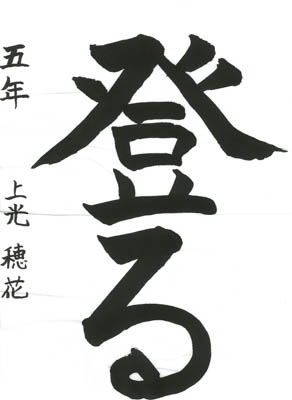 登る
五年 上光 穂花